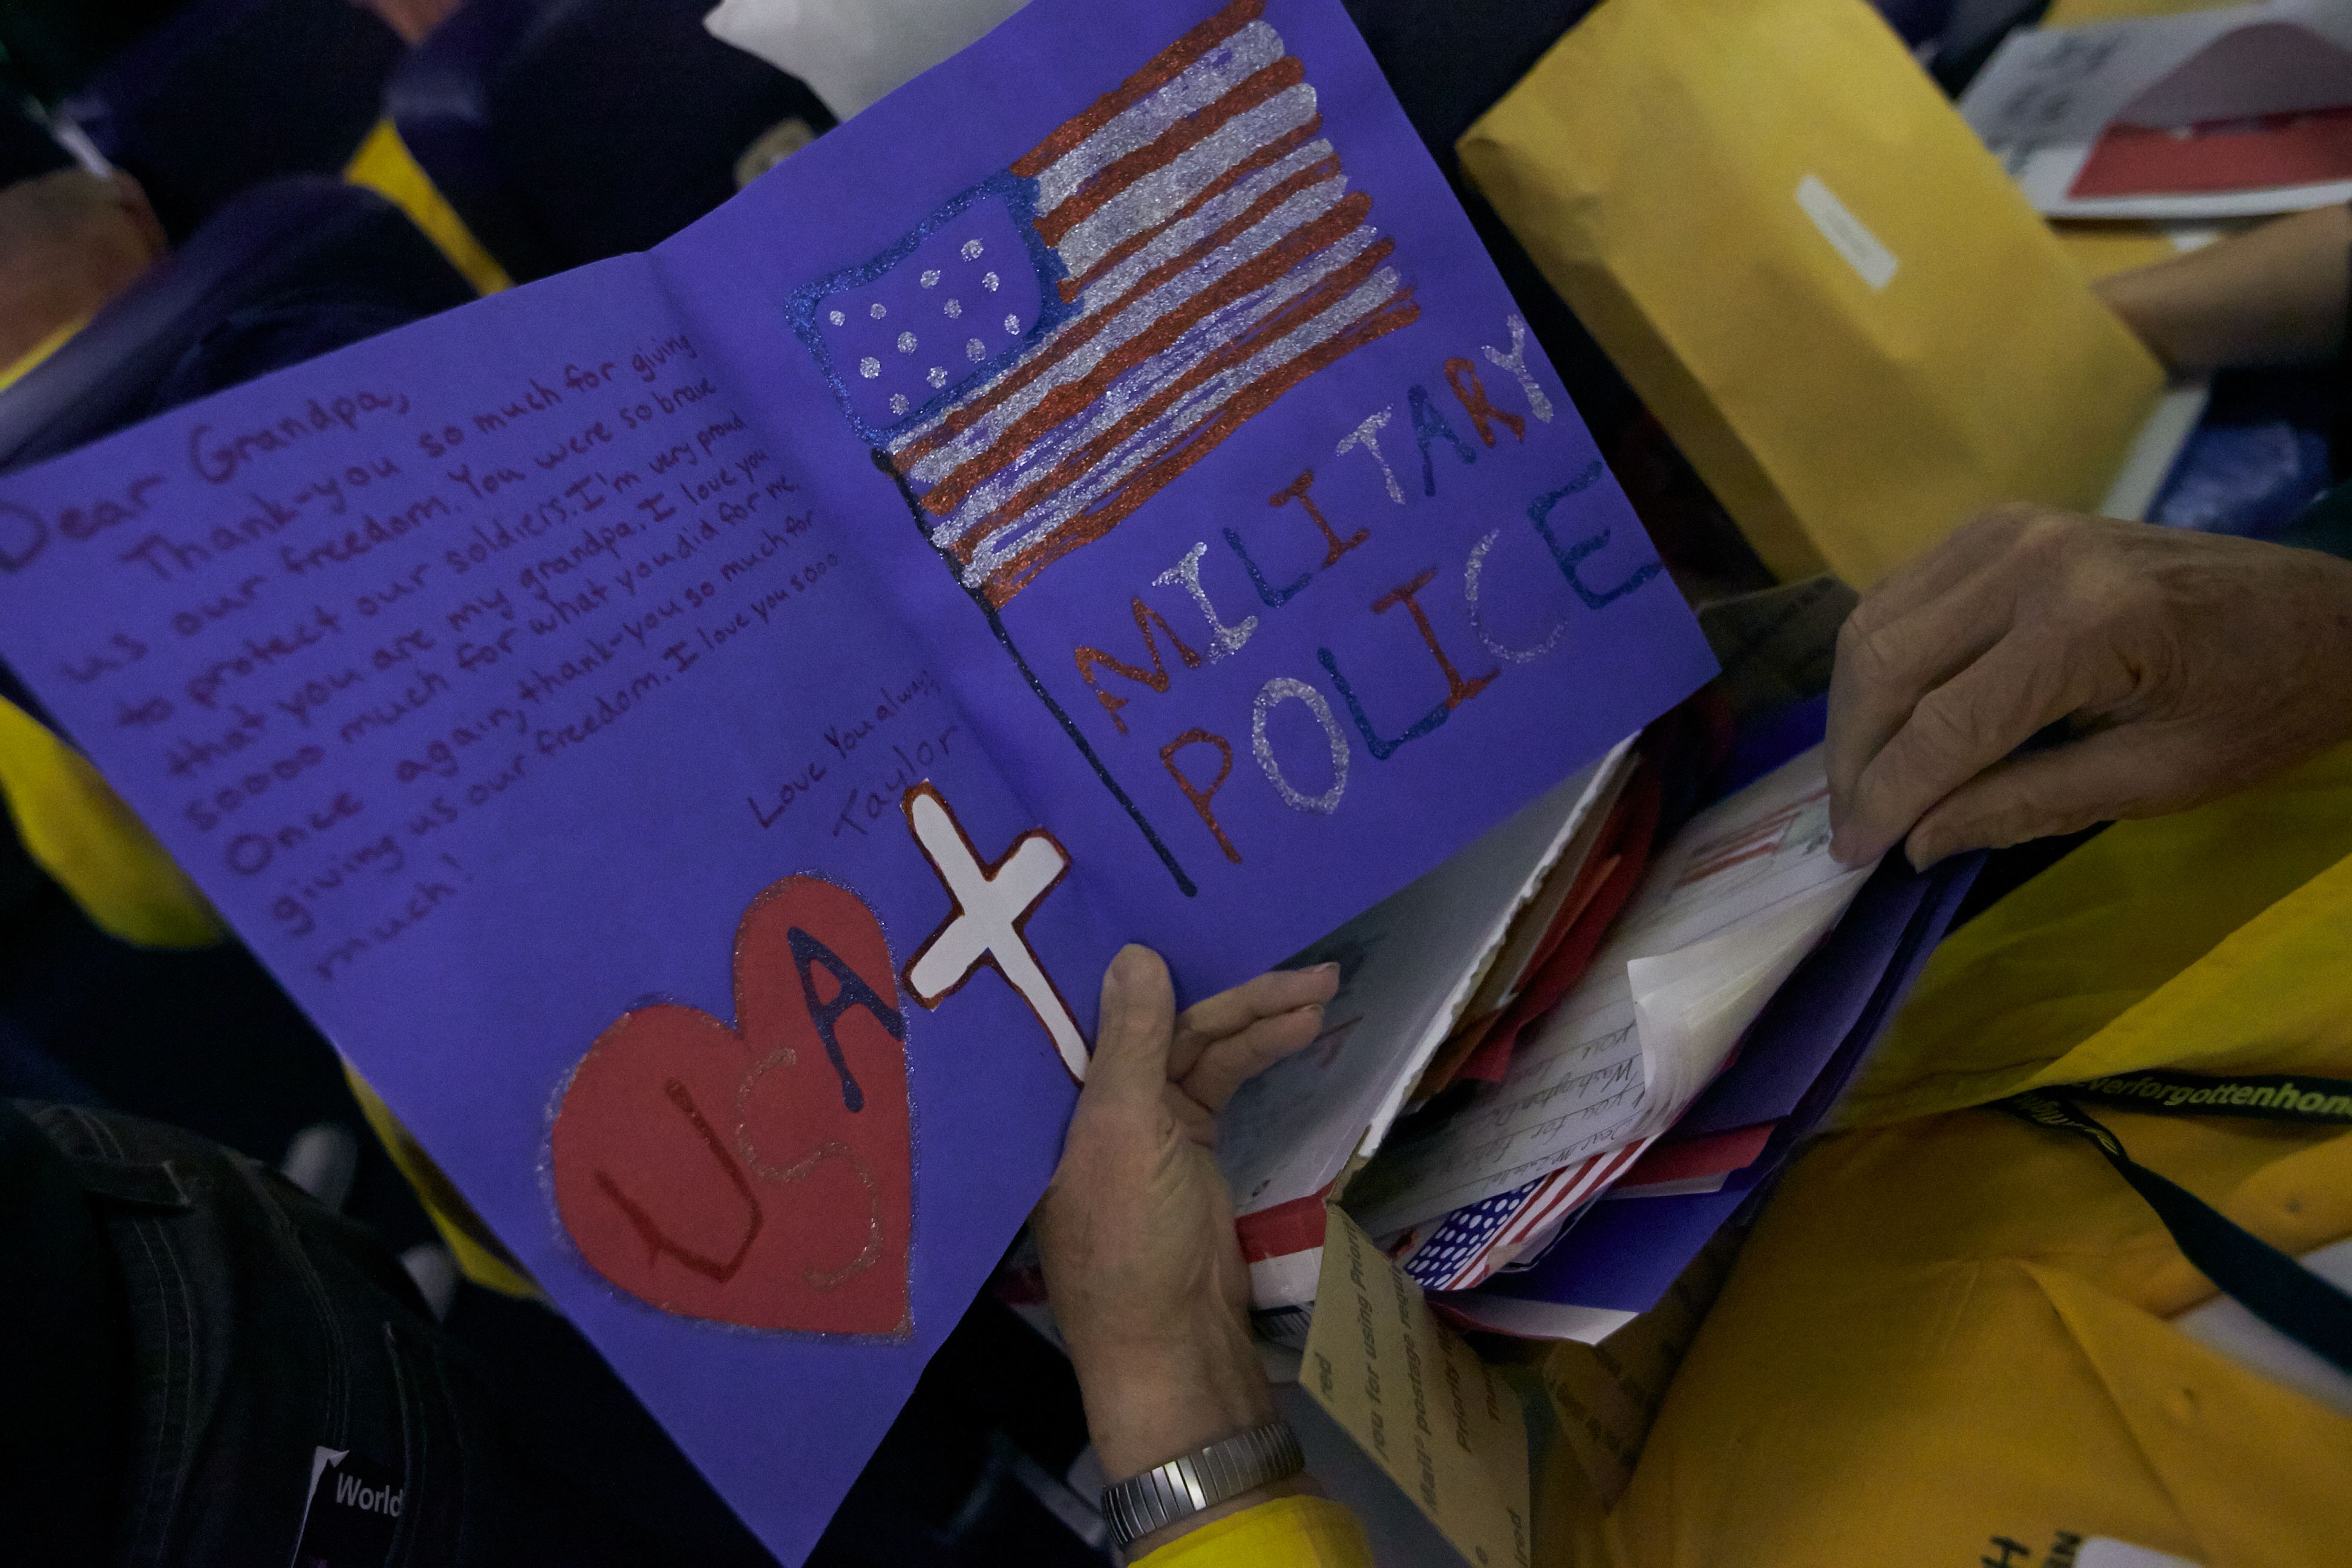 Dear Grandpa,
Thank-you so much for giving
us our freedom. You were so brave
to protect our soldiers. I'm very proud
that you are my grandpa. I love you
soooo much for what you did for me.
Once again, thank-you so much for
giving us our freedom. I love you sooo
much!
Love You always
Taylor
USA
MILITARY
POLICE
you for
Washington
you for
Dear Mr
red
You for using Priority
Mail® postage
Priority
World
everforgottenhon
H
EN